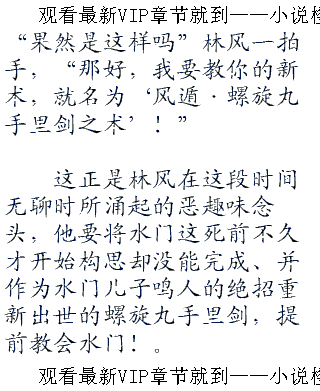 观看最新VIP章节就到——小说检
“果然是这样吗”林风一拍
手，“那好，我要教你的新
术，就名为‘风遁·螺旋丸
手里剑之术’！”
这正是林风在这段时间
无聊时所涌起的恶趣味念
头，他要将水门这死前不久
才开始构思却没能完成、并
作为水门儿子鸣人的绝招重
新出世的螺旋丸手里剑，提
前教会水门！。
观看最新VIP章节就到——小说检